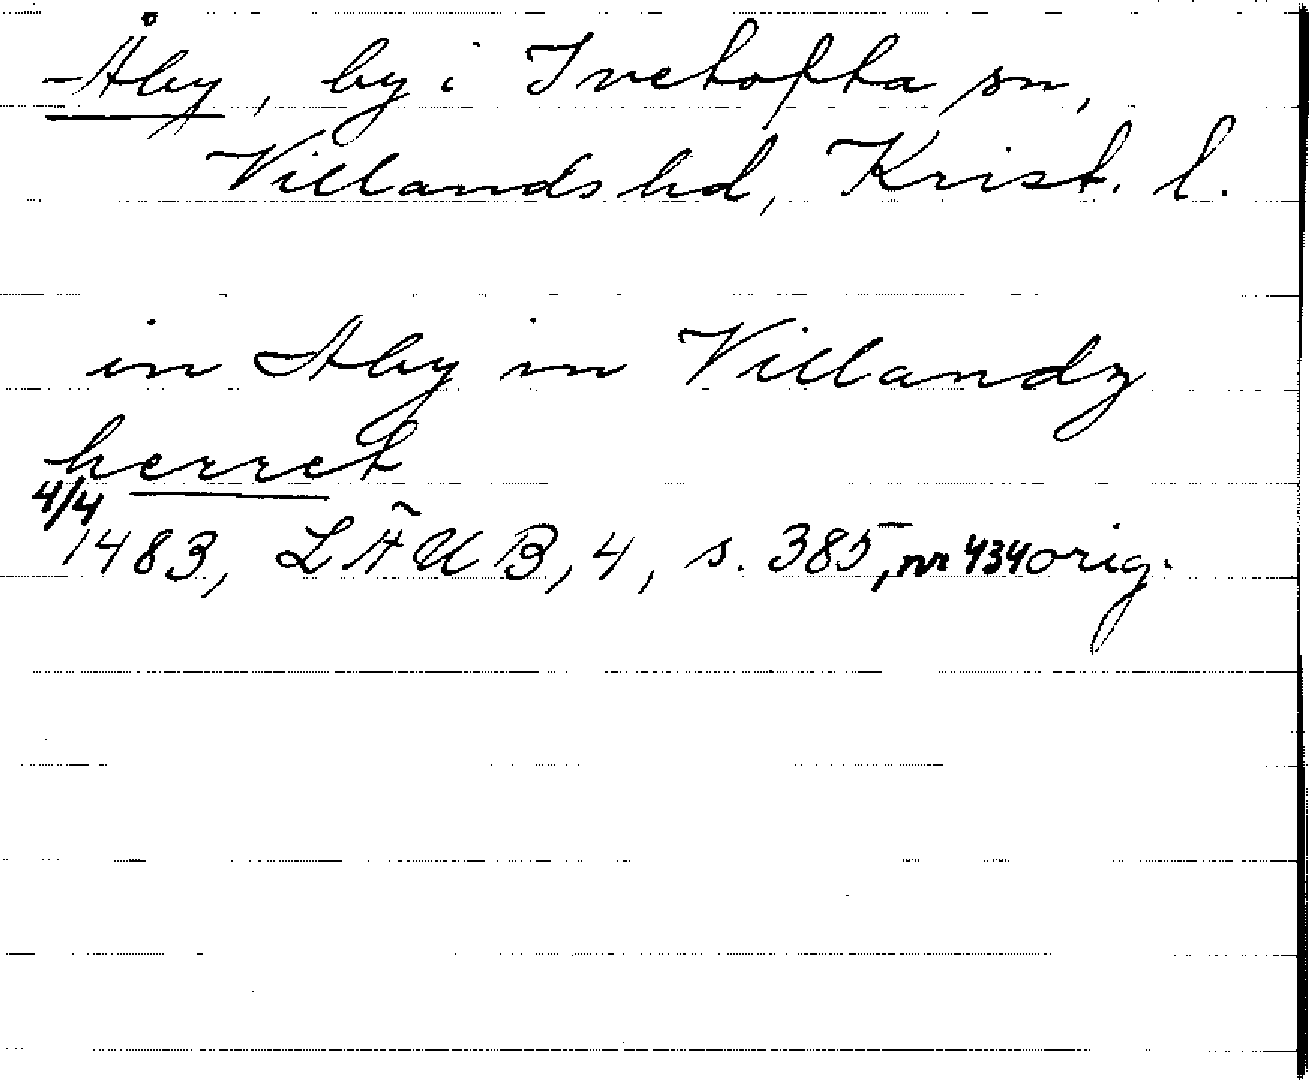 Åby, by i Ivetofta sn,
Villands hd, Krist. l.
in Aby in Villandz
herret
4/4
1483, LÄUB, 4, s. 385, nr 434 orig.